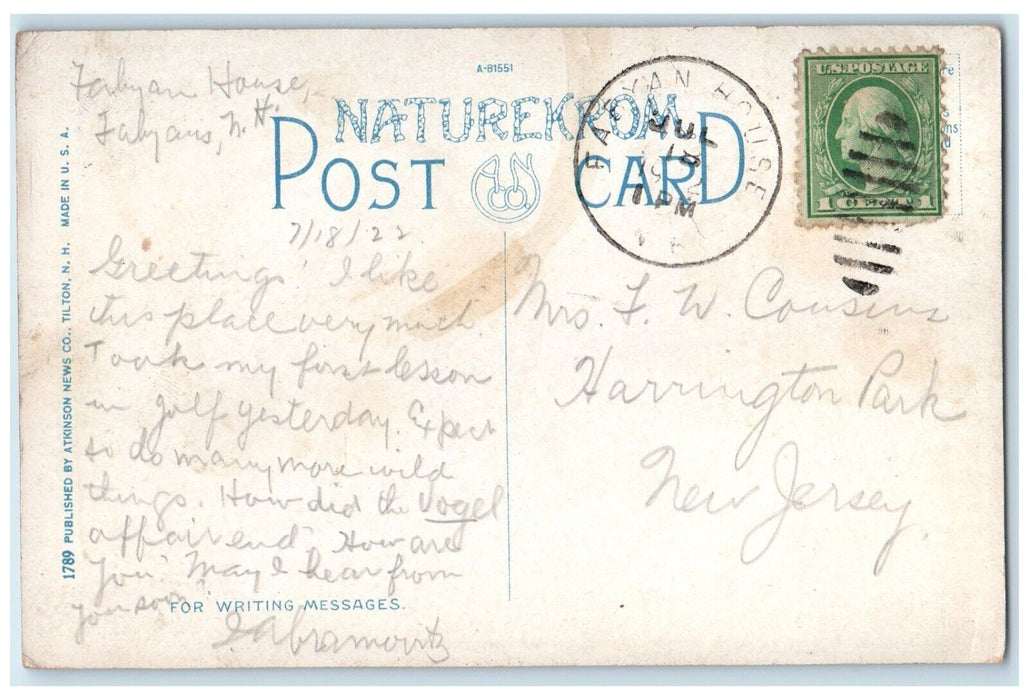 Fabyan House,
Fabyans, N.H.
A-81551
NATUREKROM
POST CARD
FABYAN HOUSE
JUL
18
1 PM
N H
U.S. POSTAGE
1 CENT 1
7/18/22
Greetings! I like
this place very much.
Took my first lesson
in golf yesterday. Expect
to do many more wild
things. How did the Vogel
affair end? How are
you? May I hear from
you soon?
FOR WRITING MESSAGES.
I. Abramovitz
Mrs. F. W. Cousins
Harrington Park
New Jersey.
1789 PUBLISHED BY ATKINSON NEWS CO., TILTON, N. H. MADE IN U. S. A.